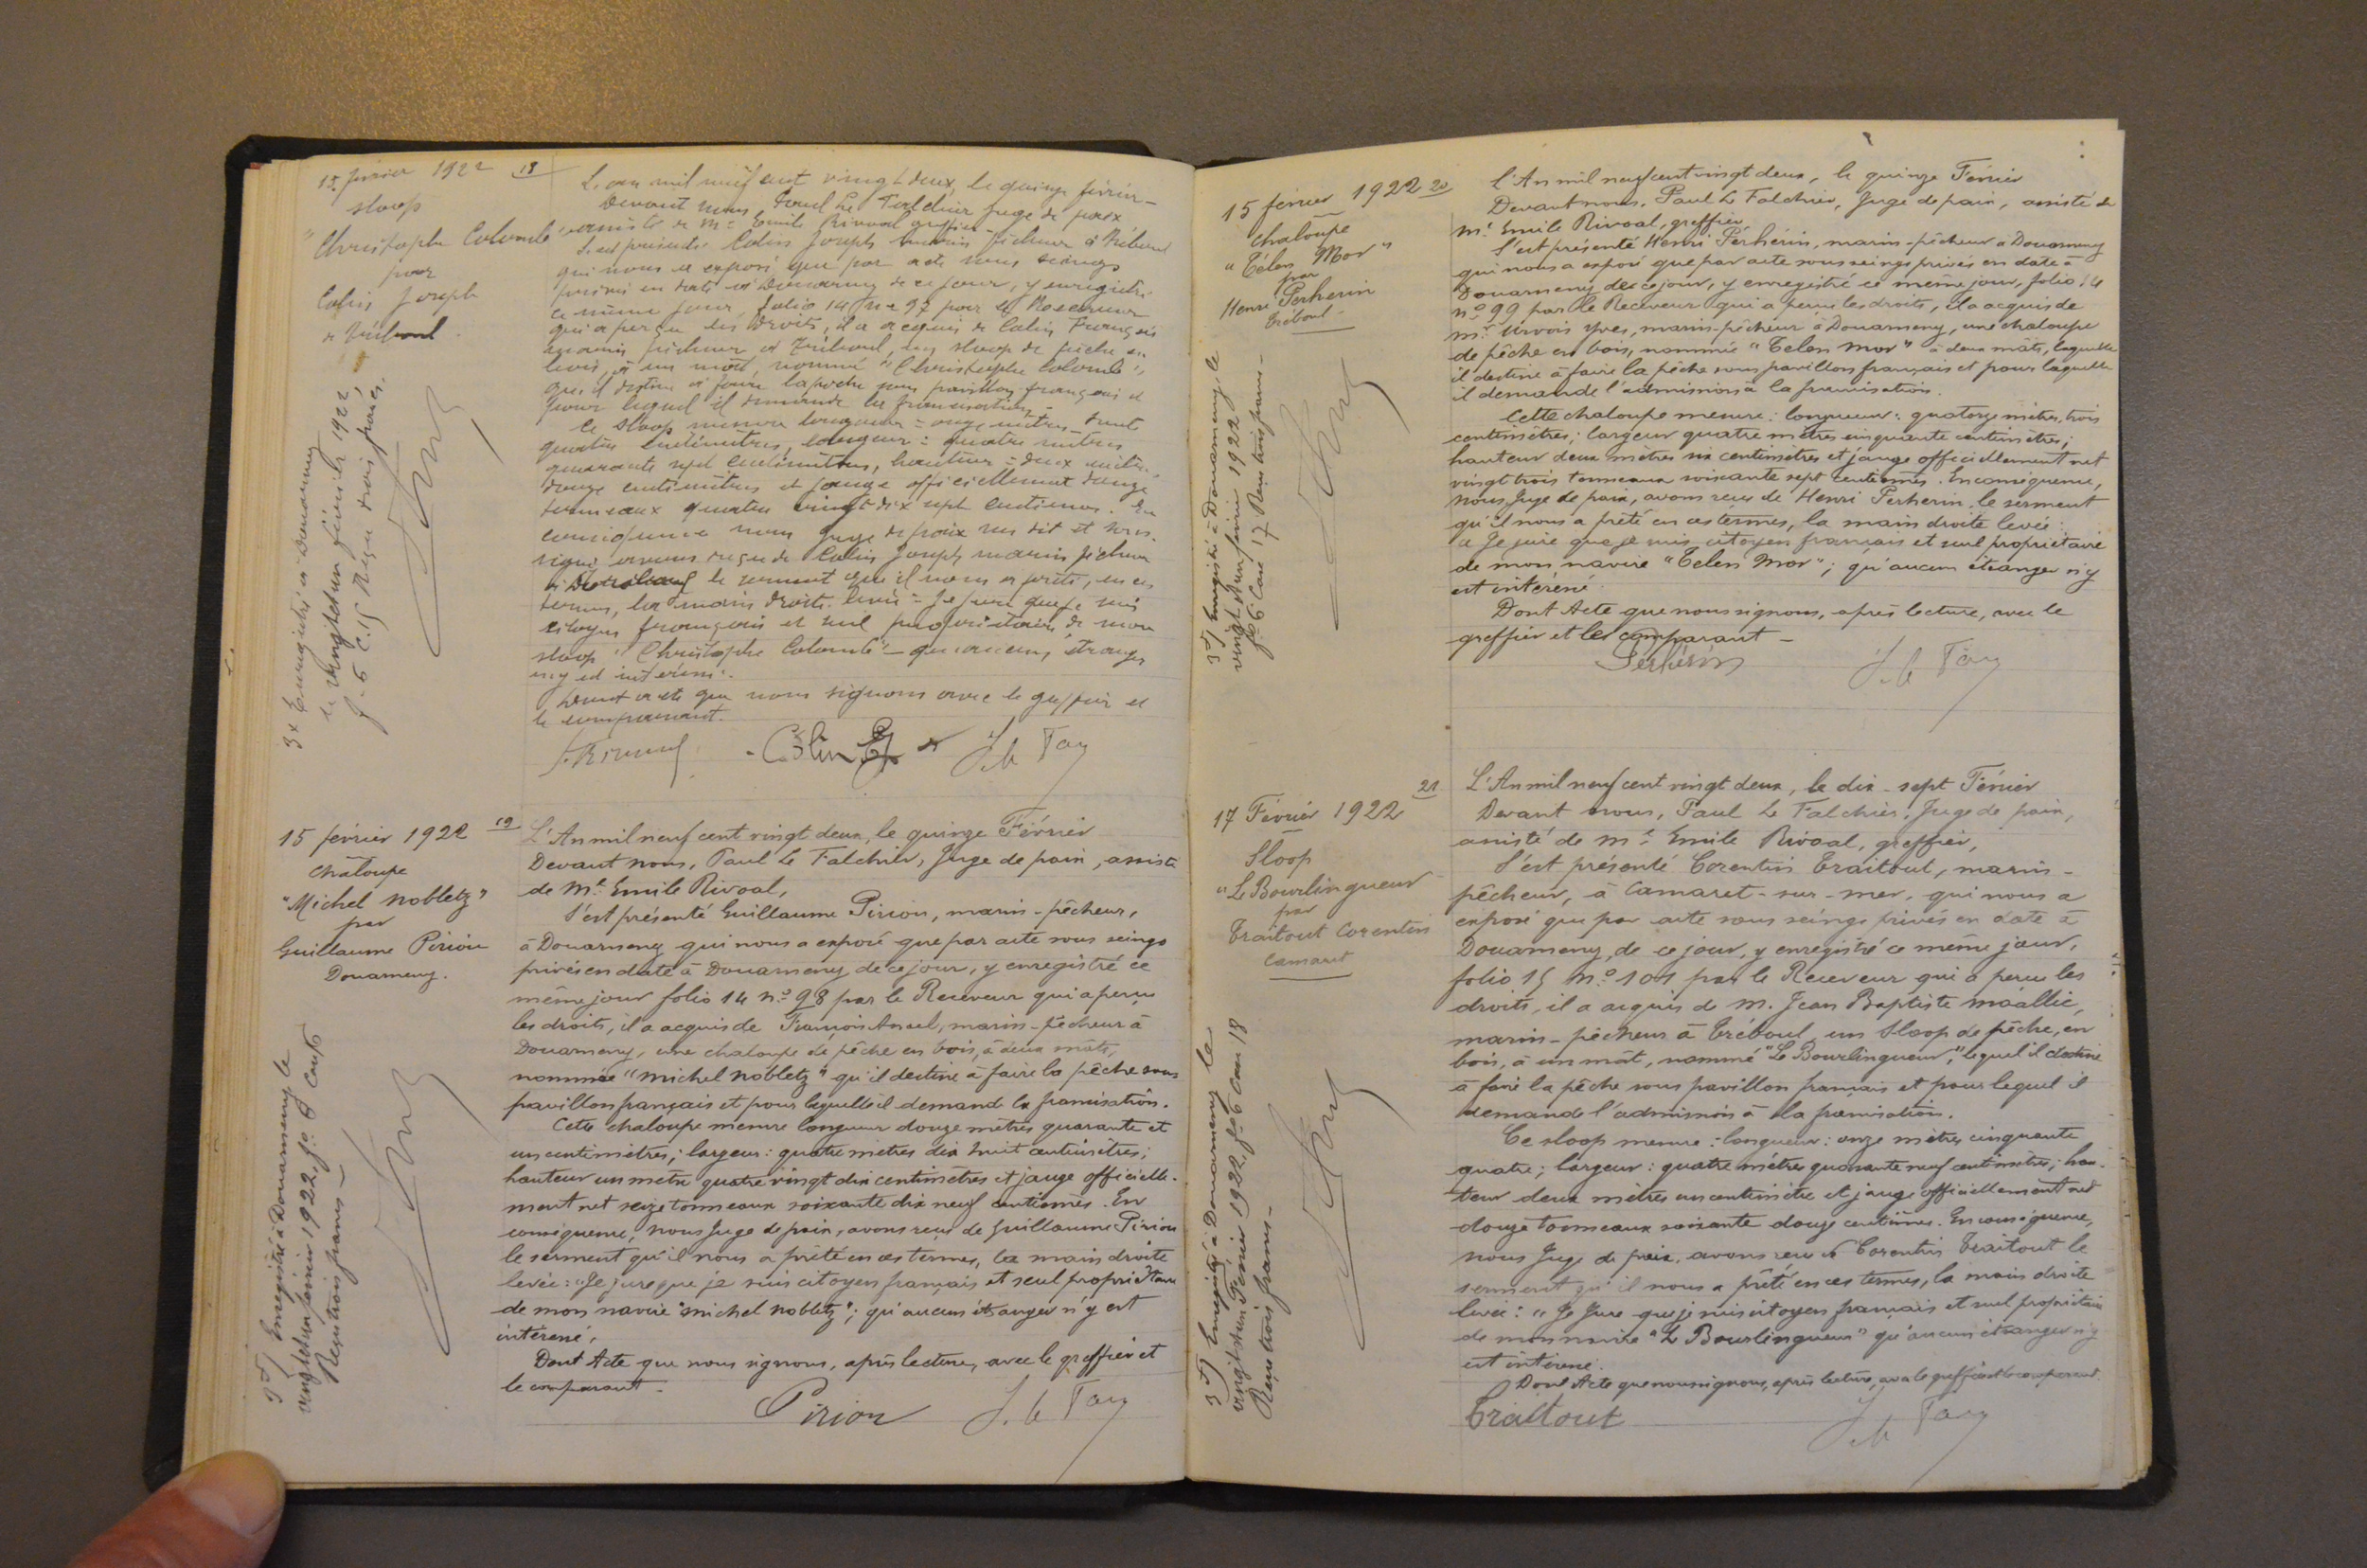 15 février 1922 18
sloop
"Christophe Colomb"
pour
Colin Joseph
de Tréboul
3 f Enregistré à Douarnenez
le vingt et un février 1922
f. 6 C. 15 Reçu trois francs.
L'an mil neuf cent vingt deux, le quinze février -
Devant nous, Paul Le Falchier Juge de paix
assisté de Me Emile Rivoal greffier
S'est présenté Colin Joseph marin pêcheur à Tréboul
qui nous a exposé que par acte sous seings
privés en date à Douarnenez de ce jour, y enregistré
ce même jour, folio 14 no 97 par le Receveur
qui a perçu les droits, il a acquis de Colin François
marin pêcheur à Tréboul, un sloop de pêche en
bois, à un mât, nommé "Christophe Colomb",
qu'il destine à faire la pêche sous pavillon français et
pour lequel il demande la francisation -
Ce sloop mesure longueur = onze mètres trente
quatre centimètres, largeur : quatre mètres
quarante sept centimètres, hauteur = deux mètres
douze centimètres et jauge officiellement douze
tonneaux quatre vingt dix sept centièmes. En
conséquence nous Juge de paix sus dit et sous-
signé avons reçu de Colin Joseph marin pêcheur
à Tréboul le serment que il nous a prêté, en ces
termes, la main droite levée = Je jure que je suis
citoyen français et seul propriétaire de mon
sloop "Christophe Colomb" - qu'aucun étranger
n'y est intéressé.
Dont acte que nous signons avec le greffier et
le comparant.
E. Rivoal Colin J. le Fay
15 février 1922 19
Chaloupe
"Michel Nobletz"
par
Guillaume Pirion
Douarnenez.
3 f Enregistré à Douarnenez le
vingt et un février 1922, fo 6 Case 16
Reçu trois francs -
L'An mil neuf cent vingt deux, le quinze Février
Devant nous, Paul Le Falchier, Juge de paix, assisté
de Me Emile Rivoal,
S'est présenté Guillaume Pirion, marin-pêcheur,
à Douarnenez qui nous a exposé que par acte sous seings
privés en date à Douarnenez de ce jour, y enregistré ce
même jour folio 14 no 98 par le Receveur qui a perçu
les droits, il a acquis de François Ansel, marin-pêcheur à
Douarnenez, une chaloupe de pêche en bois, à deux mâts,
nommée "Michel Nobletz" qu'il destine à faire la pêche sous
pavillon français et pour laquelle il demande la francisation.
Cette chaloupe mesure longueur douze mètres quarante et
un centimètres ; largeur : quatre mètres dix huit centimètres ;
hauteur un mètre quatre vingt dix centimètres et jauge officielle-
ment net seize tonneaux soixante dix neuf centièmes. En
conséquence, nous Juge de paix, avons reçu de Guillaume Pirion
le serment qu'il nous a prêté en ces termes, la main droite
levée : "Je jure que je suis citoyen français et seul propriétaire
de mon navire "Michel Nobletz" ; qu'aucun étranger n'y est
intéressé.
Dont Acte que nous signons, après lecture, avec le greffier et
le comparant -
Pirion J. le Fay
15 février 1922 20
Chaloupe
"Télen Mor"
par
Henri Perherin
Tréboul -
3 f Enregistré à Douarnenez le
vingt et un février 1922
fo 6 Case 17 Reçu trois francs -
L'An mil neuf cent vingt deux, le quinze Février
Devant nous, Paul Le Falchier, Juge de paix, assisté de
Me Emile Rivoal, greffier
S'est présenté Henri Pérhérin, marin-pêcheur à Douarnenez
qui nous a exposé que par acte sous seings privés en date à
Douarnenez de ce jour, y enregistré ce même jour, folio 14
no 99 par le Receveur qui a perçu les droits, il a acquis de
Mr Urvois Yves, marin-pêcheur à Douarnenez, une chaloupe
de pêche en bois, nommée "Telen Mor" à deux mâts, laquelle
il destine à faire la pêche sous pavillon français et pour laquelle
il demande l'admission à la francisation.
Cette chaloupe mesure : longueur : quatorze mètres, trois
centimètres ; largeur quatre mètres cinquante centimètres ;
hauteur deux mètres six centimètres et jauge officiellement net
vingt trois tonneaux soixante sept centièmes. En conséquence,
nous, Juge de paix, avons reçu de Henri Perherin le serment
qu'il nous a prêté en ces termes, la main droite levée :
"Je jure que je suis citoyen français et seul propriétaire
de mon navire "Telen Mor" ; qu'aucun étranger n'y
est intéressé
Dont Acte que nous signons, après lecture, avec le
greffier et le comparant -
Perhérin J. le Fay
17 Février 1922 21
Sloop
"Le Bourlingueur"
par
Traitout Corentin
Camaret
3 f Enregistré à Douarnenez le
vingt et un Février 1922 fo 6 Case 18
Reçu trois francs -
L'An mil neuf cent vingt deux, le dix-sept Février
Devant nous, Paul Le Falchier, Juge de paix,
assisté de Me Emile Rivoal, greffier,
S'est présenté Corentin Traitout, marin-
pêcheur, à Camaret-sur-mer, qui nous a
exposé que par acte sous seings privés en date à
Douarnenez, de ce jour, y enregistré ce même jour,
folio 15 No 101 par le Receveur qui a perçu les
droits, il a acquis de M. Jean Baptiste Moallic,
marin-pêcheur à Tréboul, un Sloop de pêche, en
bois, à un mât, nommé "Le Bourlingueur", lequel il destine
à faire la pêche sous pavillon français et pour lequel il
demande l'admission à la francisation.
Ce sloop mesure : longueur : onze mètres cinquante
quatre ; largeur : quatre mètres quarante neuf centimètres ; hau-
teur deux mètres un centimètre et jauge officiellement net
douze tonneaux soixante douze centièmes. En conséquence,
nous Juge de paix, avons reçu de Corentin Traitout le
serment qu'il nous a prêté en ces termes, la main droite
levée : "Je Jure que je suis citoyen français et seul propriétaire
de mon navire "Le Bourlingueur" qu'aucun étranger n'y
est intéressé.
Dont Acte que nous signons, après lecture, avec le greffier et le comparant.
Traitout J. le Fay